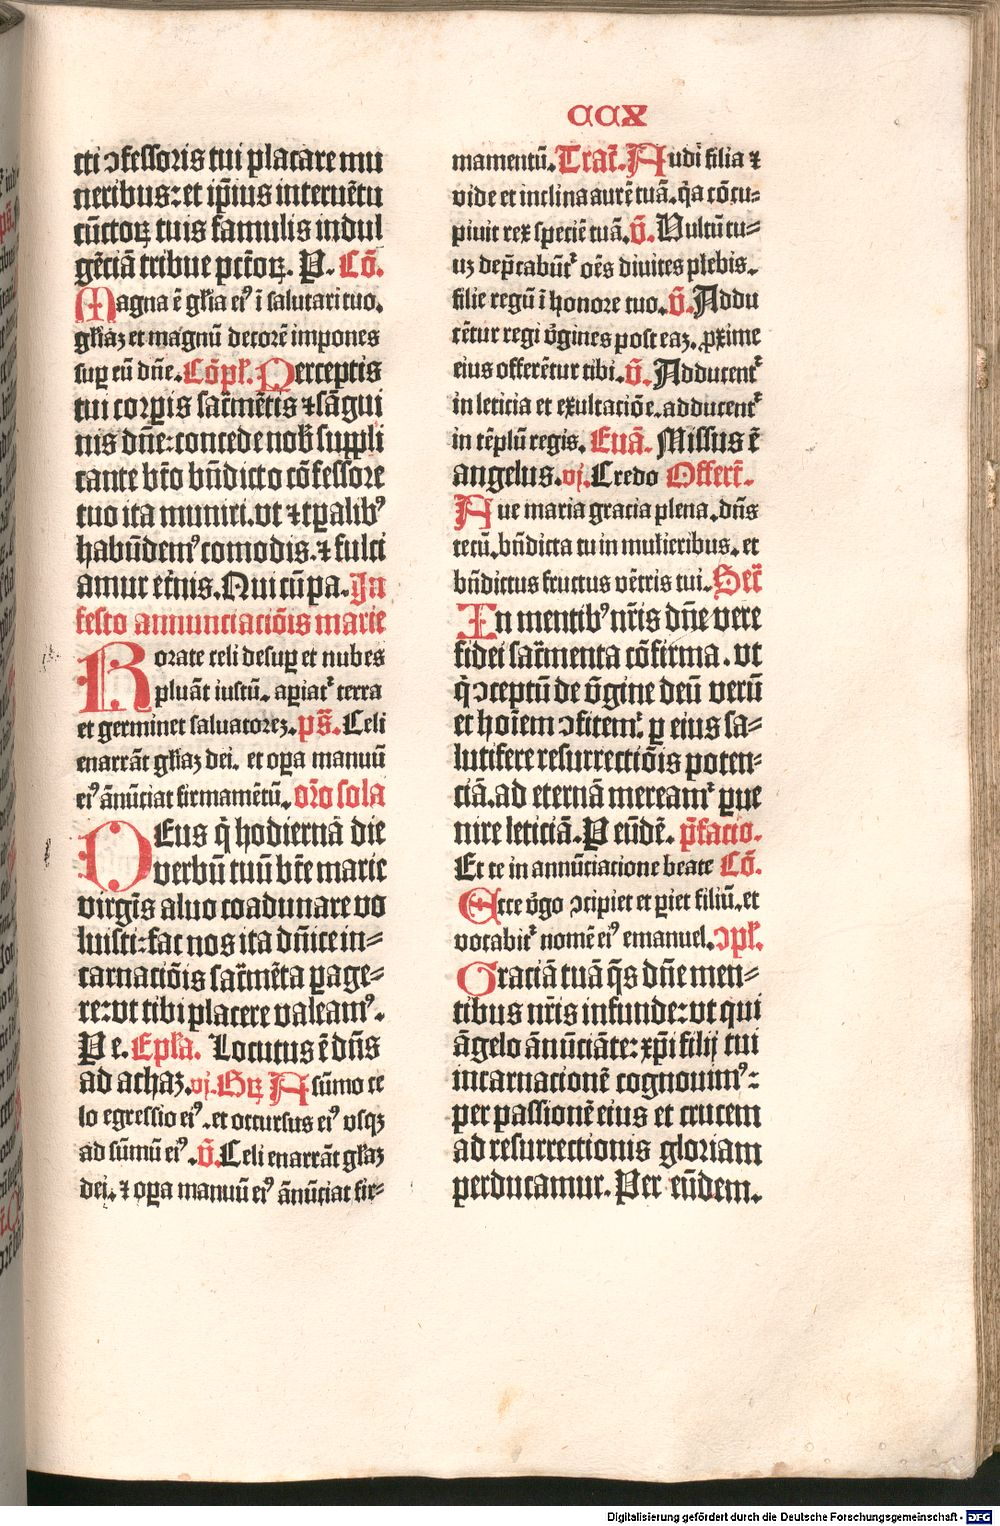 CCX
cti ↄfessoris tui placare mu
neribus: et ip̄ius interuētu
cūctoꝝ tuis famulis indul
gētiā tribue pctōꝝ. P. Cō.
Magna ē gl̄ia eiꝰ ī salutari tuo.
gl̄iaꝫ et magnū decorē impones
suꝑ eū dn̄e. Cōpl̄. Perceptis
tui corꝑis sac̄mētis ⁊ sāgui
nis dn̄e: concede nob̄ suppli
cante bt̄o bn̄dicto cōfessore
tuo ita muniri. vt ⁊ tꝑalibꝰ
habūdemꝰ comodis. ⁊ fulci
amur et̄nis. Qui cū pa. In
festo annunciaciōis marie
Rorate celi desuꝑ et nubes
pluāt iustū. aꝑiat᷑ terra
et germinet saluatoreꝫ. ps̄. Celi
enarrāt gl̄iaꝫ dei. et oꝑa manuū
eiꝰ ānūciat firmamētū. or̄o sola
DEus q̄ hodiernā die
verbū tuū bt̄e marie
virgīs aluo coadunare vo
luisti: fac nos ita dn̄ice in⸗
carnaciōis sac̄mēta ꝑage⸗
re: vt tibi placere valeamꝰ.
P e. Epl̄a. Locutus ē dn̄s
ad achaꝫ. vj. Gꝝ A sūmo ce
lo egressio eiꝰ. et occursus eiꝰ vsqꝫ
ad sūmū eiꝰ. v̄. Celi enarrāt gl̄iaꝫ
dei. ⁊ oꝑa manuū eiꝰ ānūciat fir⸗
mamentū. Tract̄. Audi filia ⁊
vide et inclina aurē tuā. q̄a cōcu⸗
piuit rex speciē tuā. v̄. Vultū tu⸗
uꝫ dep̄cabūt᷑ oēs diuites plebis.
filie regū ī honore tuo. v̄. Addu
cētur regi v̄gines post eaꝫ. ꝓxime
eius offerētur tibi. v̄. Adducent᷑
in leticia et exultaciōe. adducent᷑
in tēplū regis. Euā. Missus ē
angelus. vj. Credo Offert̄.
Aue maria gracia plena. dn̄s
tecū. bn̄dicta tu in mulieribus. et
bn̄dictus fructus vētris tui. Sec̄
In mentibꝰ nr̄is dn̄e vere
fidei sac̄menta cōfirma. vt
q̄ ↄceptū de v̄gine deū verū
et hoīem ↄfitem᷑. ꝑ eius sa⸗
lutifere resurrectiōis poten⸗
ciā. ad eternā mereamꝰ ꝑue
nire leticiā. P eūdē. p̄facio.
Et te in annūciacione beate Cō.
Ecce v̄go ↄcipiet et ꝑiet filiū. et
vocabit᷑ nomē eiꝰ emanuel. ↄpl̄.
Graciā tuā q̄s dn̄e men⸗
tibus nr̄is infunde: vt qui
āgelo ānūciāte: xp̄i filij tui
incarnacionē cognouimꝰ:
per passionē eius et crucem
ad resurrectionis gloriam
perducamur. Per eūdem.
Digitalisierung gefördert durch die Deutsche Forschungsgemeinschaft - DFG